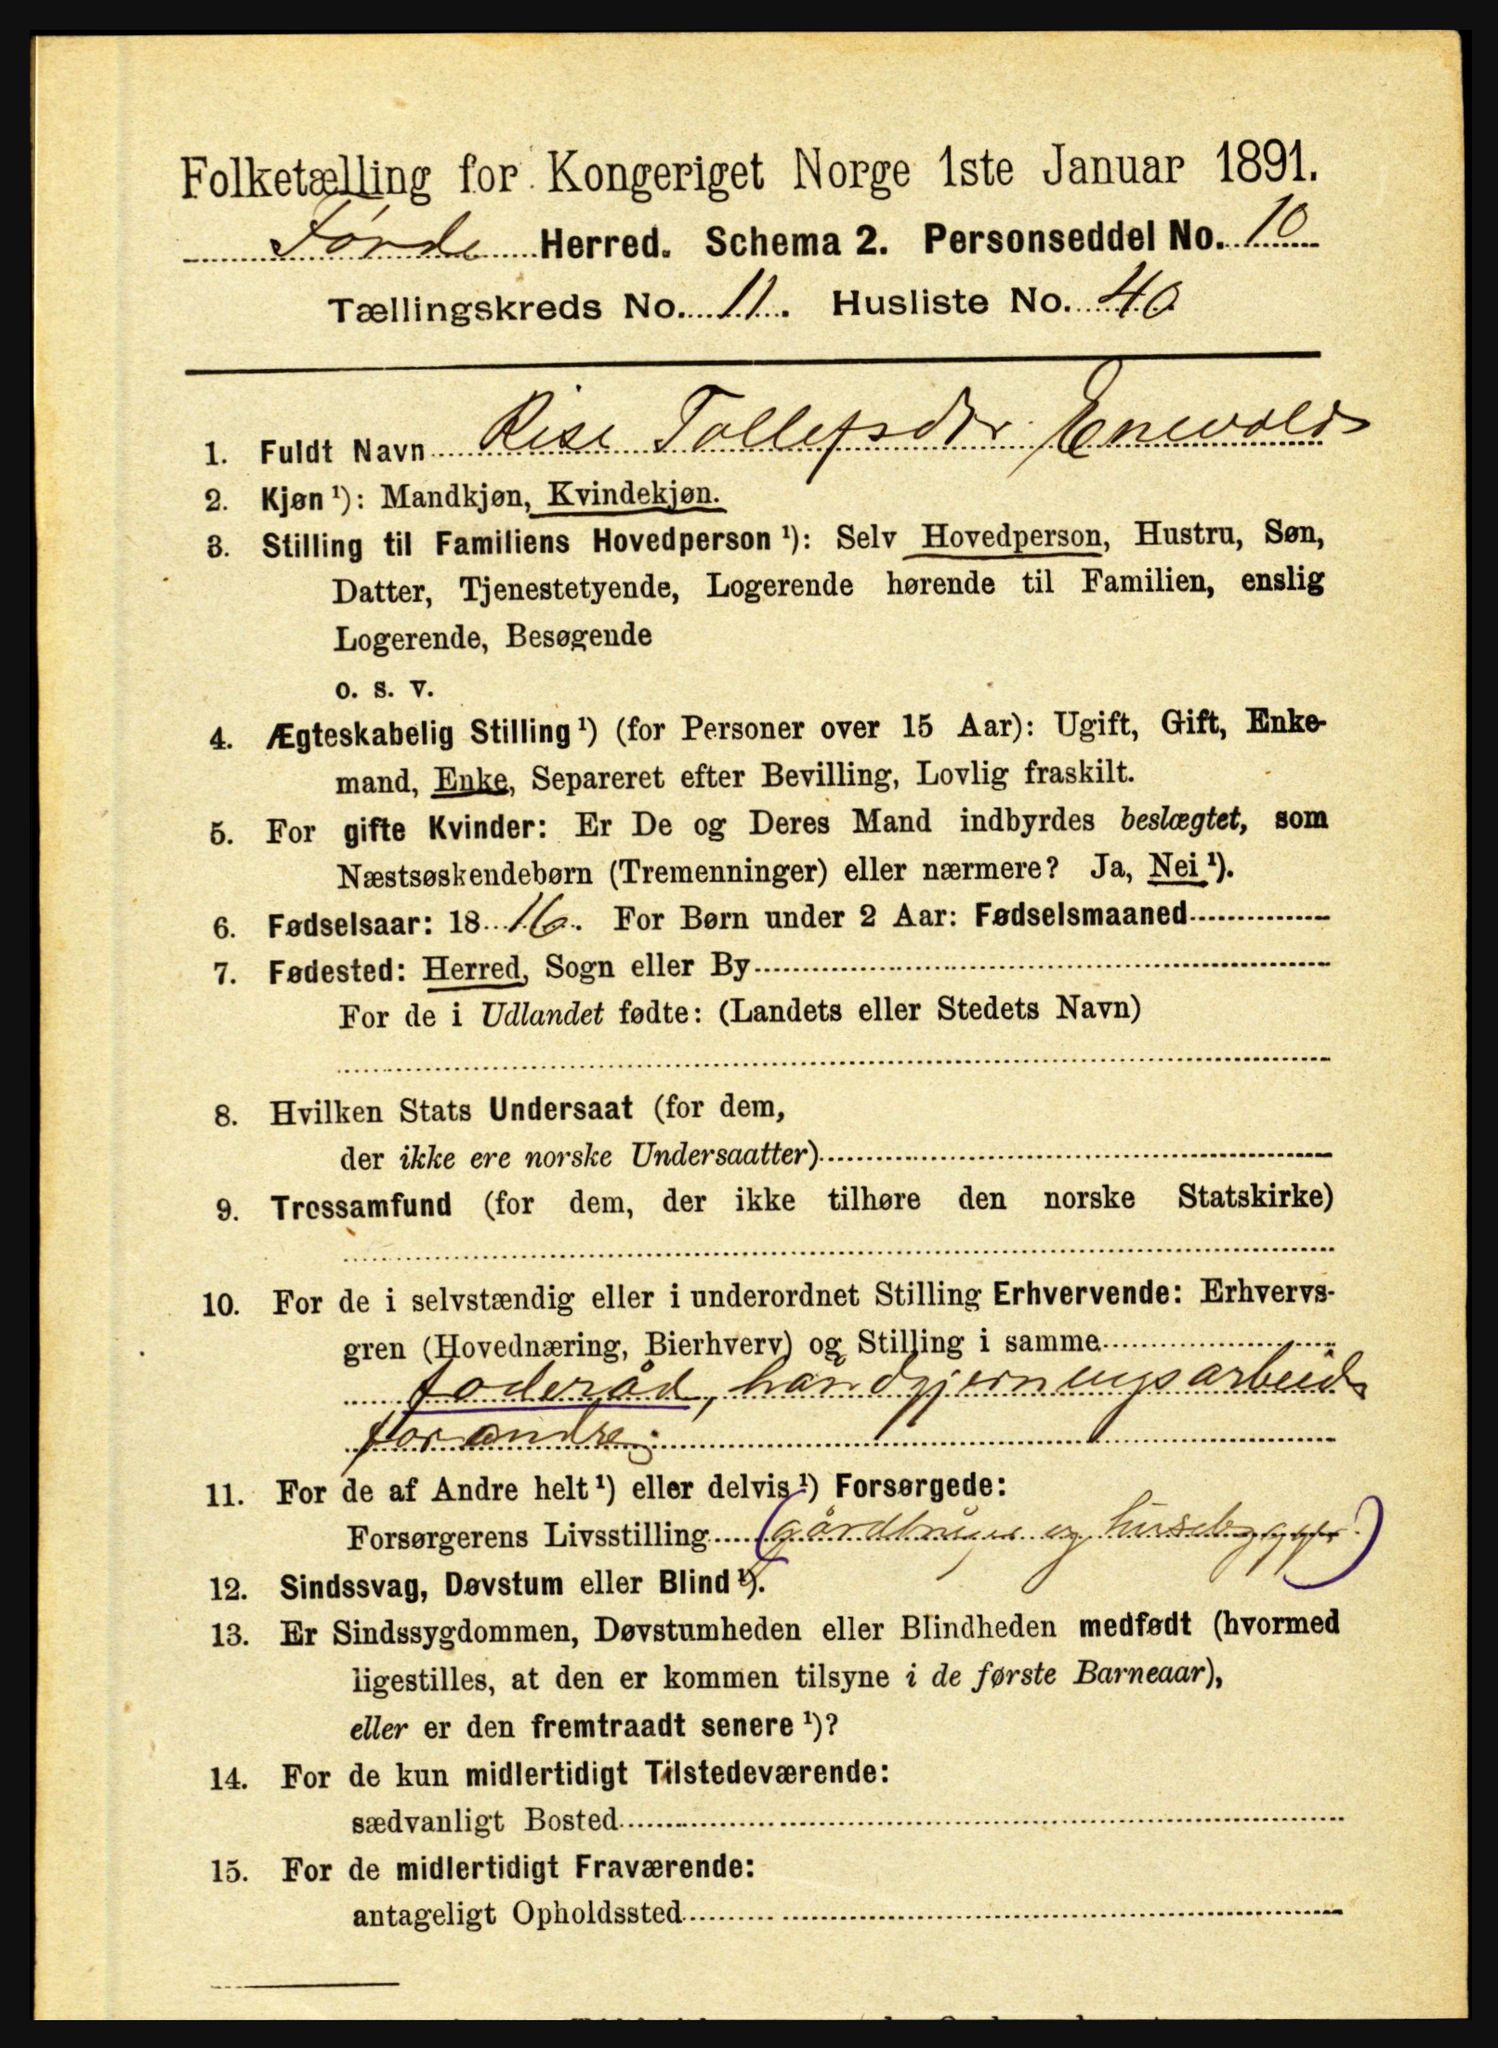 Folketælling for Kongeriget Norge 1ste Januar 1891.
Førde Herred. Schema 2. Personseddel No. 10
Tællingskreds No. 11. Husliste No. 40
1. Fuldt Navn Rise Tollefsdtr. Enevolds
2. Kjøn ¹): Mandkjøn, Kvindekjøn.
3. Stilling til Familiens Hovedperson ¹): Selv Hovedperson, Hustru, Søn,
Datter, Tjenestetyende, Logerende hørende til Familien, enslig
Logerende, Besøgende
o. s. v.
4. Ægteskabelig Stilling ¹) (for Personer over 15 Aar): Ugift, Gift, Enke-
mand, Enke, Separeret efter Bevilling, Lovlig fraskilt.
5. For gifte Kvinder: Er De og Deres Mand indbyrdes beslægtet, som
Næstsøskendebørn (Tremenninger) eller nærmere? Ja, Nei ¹).
6. Fødselsaar: 18 16. For Børn under 2 Aar: Fødselsmaaned
7. Fødested: Herred, Sogn eller By
For de i Udlandet fødte: (Landets eller Stedets Navn)
8. Hvilken Stats Undersaat (for dem,
der ikke ere norske Undersaatter)
9. Trossamfund (for dem, der ikke tilhøre den norske Statskirke)
10. For de i selvstændig eller i underordnet Stilling Erhvervende: Erhvervs-
gren (Hovednæring, Bierhverv) og Stilling i samme
foderåd, håndgjerningsarbeide
for andre.
11. For de af Andre helt ¹) eller delvis ¹) Forsørgede:
Forsørgerens Livsstilling (gårdbruger og husebygger.)
12. Sindssvag, Døvstum eller Blind ¹).
13. Er Sindssygdommen, Døvstumheden eller Blindheden medfødt (hvormed
ligestilles, at den er kommen tilsyne i de første Barneaar),
eller er den fremtraadt senere ¹)?
14. For de kun midlertidigt Tilstedeværende:
sædvanligt Bosted
15. For de midlertidigt Fraværende:
antageligt Opholdssted